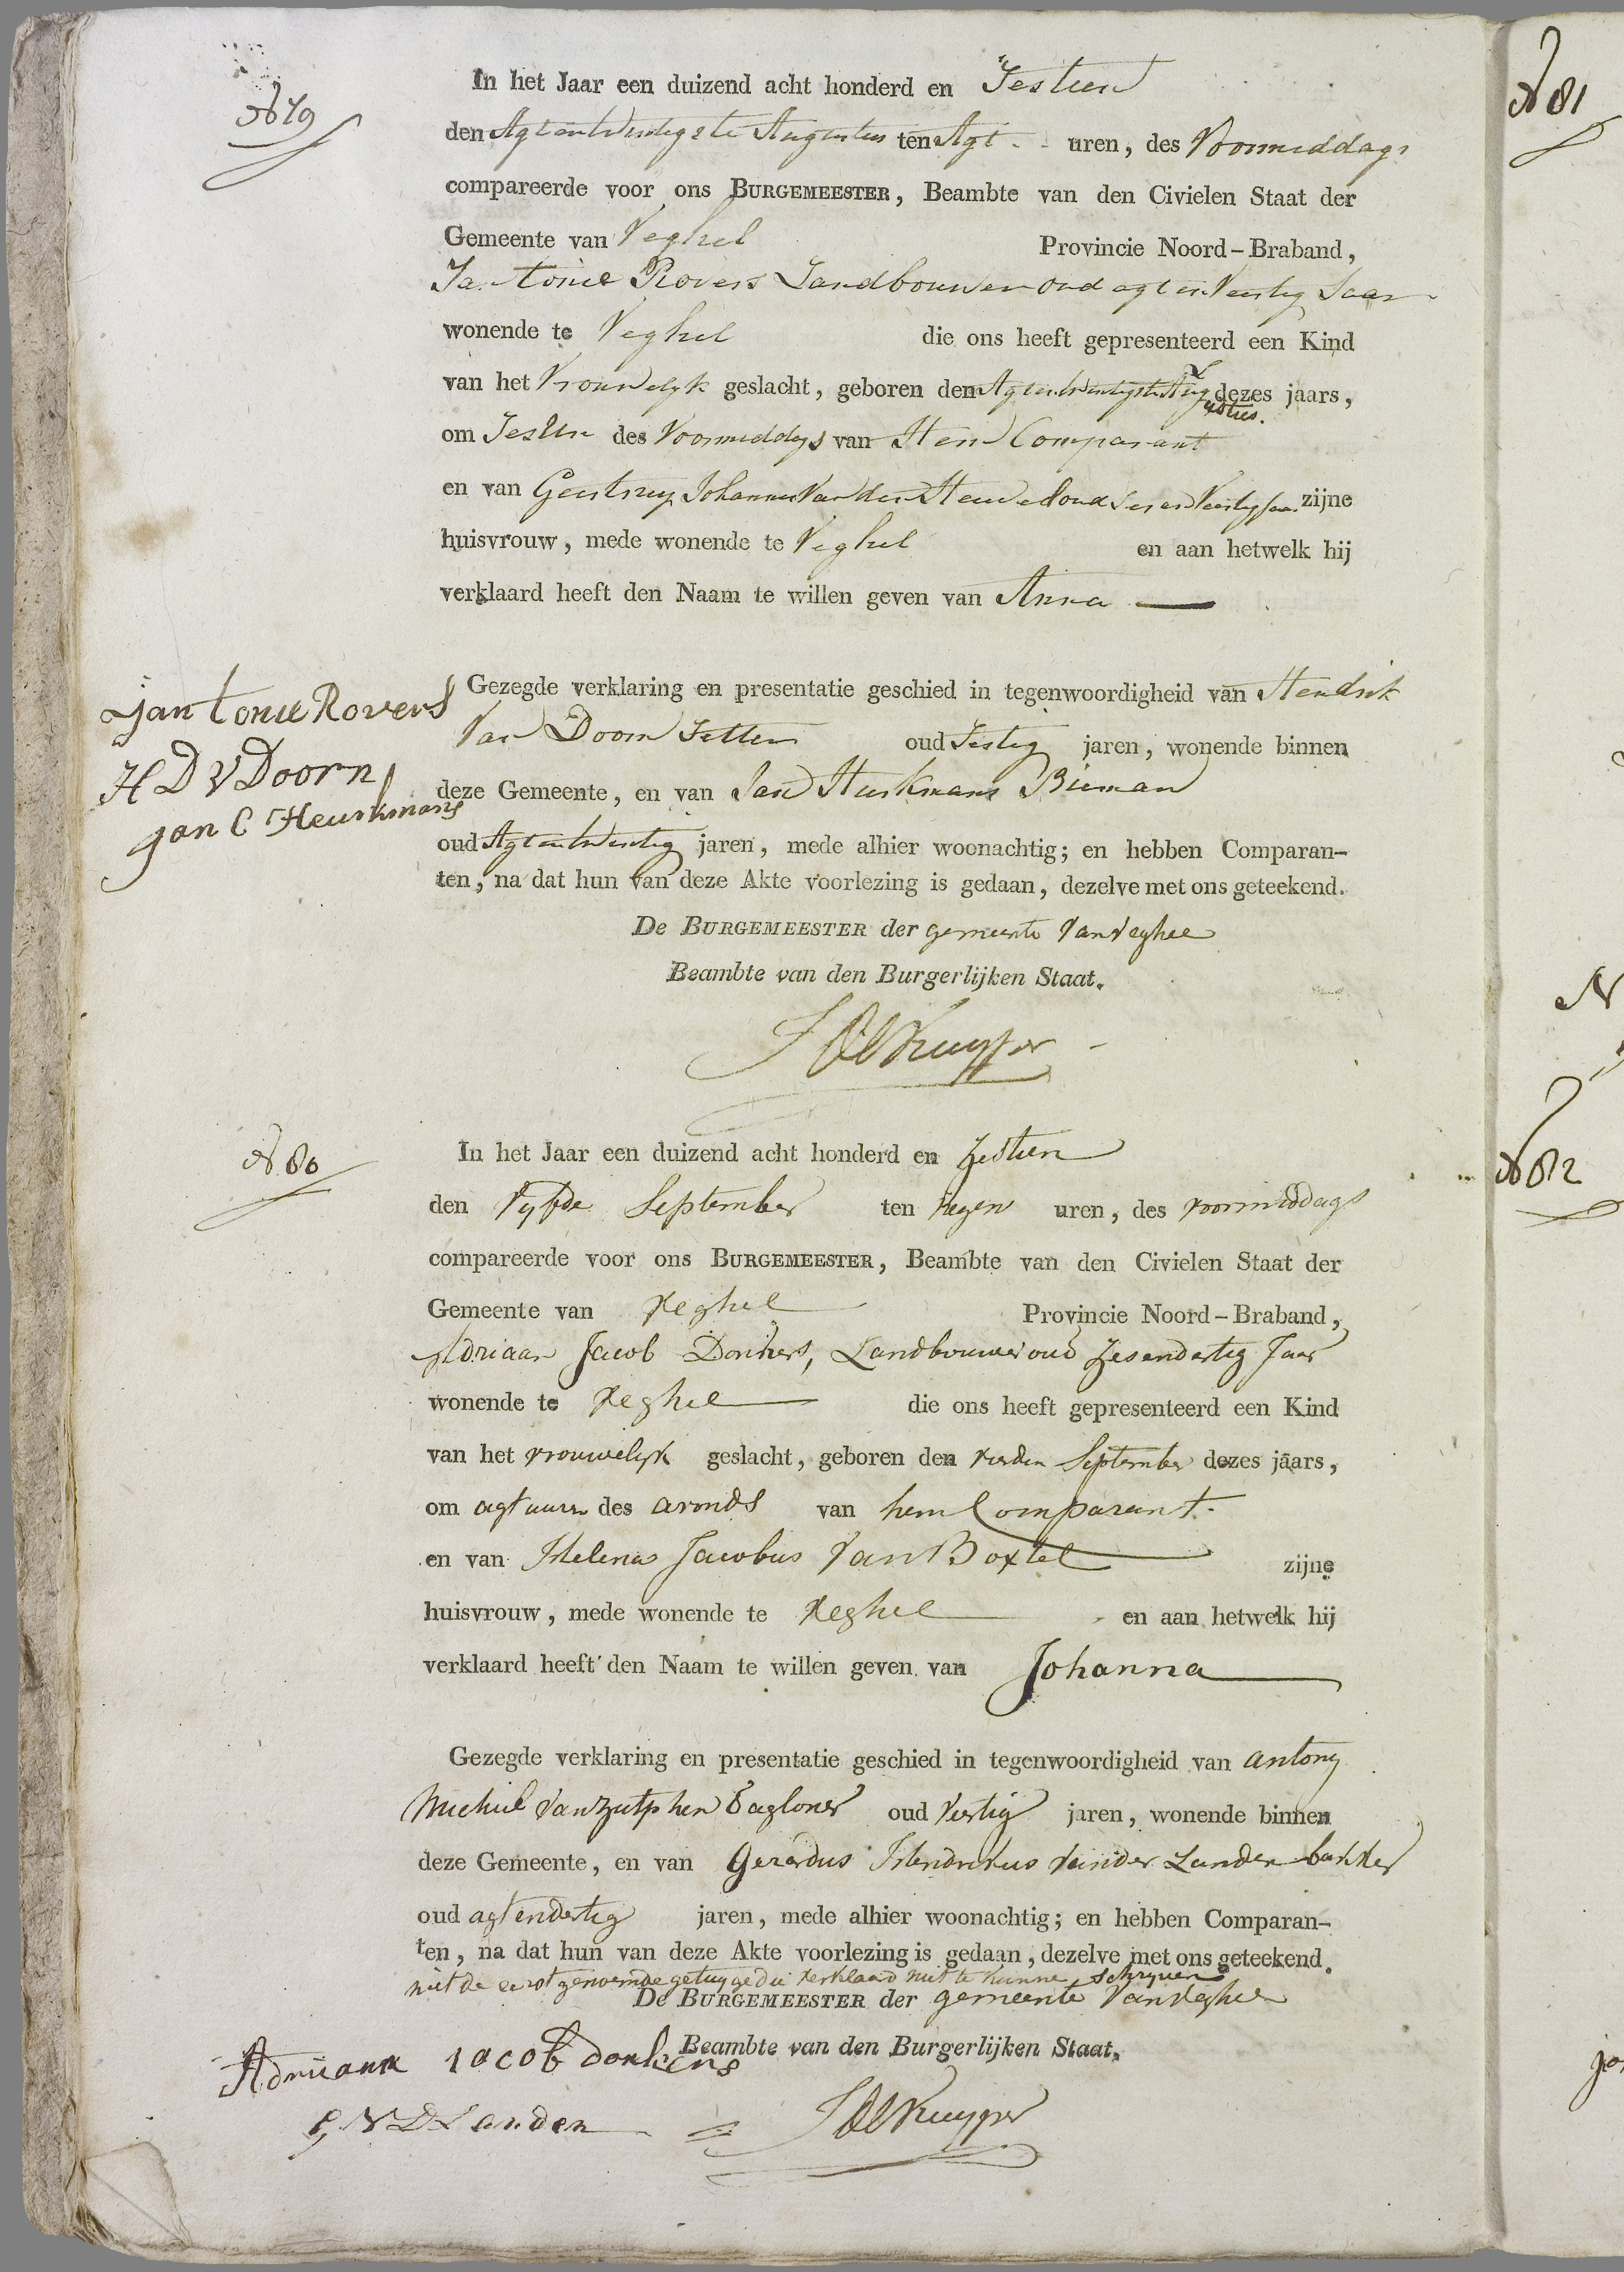 N 79
In het Jaar een duizend acht honderd en Sestien
den Agt en twintigste Augustus ten Agt uren, des Voormiddags
compareerde voor ons BURGEMEESTER, Beambte van den Civielen Staat der
Gemeente van Veghel Provincie Noord-Braband,
Jan tonie Rovers Landbouwer oud agt en Veertig Jaar
wonende te Veghel die ons heeft gepresenteerd een Kind
van het Vrouwelyk geslacht, geboren den Agt en twintigste Augustus dezes jaars,
om des Voormiddags van Hem Comparant
en van Geertruy Johannes Van den oud Ses en Veertig Jaar zijne
huisvrouw, mede wonende te Veghel en aan hetwelk hij
verklaard heeft den Naam te willen geven van Anna
Gezegde verklaring en presentatie geschied in tegenwoordigheid van Hendrik
Van Doorn Setter oud Sestig jaren, wonende binnen
deze Gemeente, en van Jan Heurkmans
oud Agt en twintig jaren, mede alhier woonachtig; en hebben Comparan-
ten, na dat hun van deze Akte voorlezing is gedaan, dezelve met ons geteekend.
De BURGEMEESTER der gemeente Van Veghel
Beambte van den Burgerlijken Staat.
jan tonie Rovers
H D V Doorn
jan C Heurkmans
N. 80
In het Jaar een duizend acht honderd en Zestien
den Vyfde September ten Negen uren, des voormiddags
compareerde voor ons BURGEMEESTER, Beambte van den Civielen Staat der
Gemeente van Veghel Provincie Noord-Braband,
Adriaan Jacob Donkers, Landbouwer oud Zesendertig Jaar
wonende te Veghel die ons heeft gepresenteerd een Kind
van het vrouwelyk geslacht, geboren den vierden September dezes jaars,
om agt uuren des avonds van hem Comparant
en van Helena Jacobus Van Boxtel zijne
huisvrouw, mede wonende te Veghel en aan hetwelk hij
verklaard heeft den Naam te willen geven van Johanna
Gezegde verklaring en presentatie geschied in tegenwoordigheid van antony
Michiel Van Zutphen Dagloner oud Veertig jaren, wonende binnen
deze Gemeente, en van Gerardus Hendrikus van der Landen bakker
oud agtendertig jaren, mede alhier woonachtig; en hebben Comparan-
ten, na dat hun van deze Akte voorlezing is gedaan, dezelve met ons geteekend.
niet de eerstgenoemde getuyge die verklaard niet te kunne schryven
De BURGEMEESTER der gemeente Van Veghel
Beambte van den Burgerlijken Staat.
Adriaann iacob donkers
G V D Landen
N 81
N 82